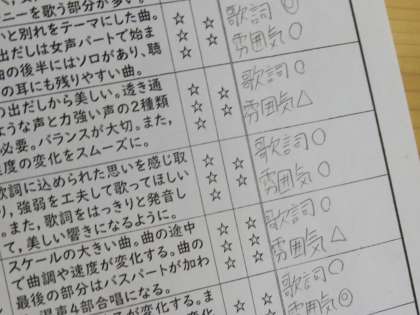 ニーを歌う部分が多い。
いと別れをテーマにした曲。
出だしは女声パートで始ま
曲の後半にはソロがあり、聴
の耳にも残りやすい曲。
☆ ☆
☆ ☆
☆
歌詞◎
雰囲気○
の出だしから美しい。透き通
ような声と力強い声の2種類
必要。バランスが大切。また、
速度の変化をスムーズに。
☆ ☆
☆ ☆
☆ ☆
歌詞○
雰囲気△
歌詞に込められた思いを感じ取
り、強弱を工夫して歌ってほしい
。また、歌詞をはっきりと発音し
て、美しい響きになるように。
☆ ☆
☆ ☆
☆ ☆
歌詞○
雰囲気○
スケールの大きい曲。曲の途中
で曲調や速度が変化する。曲の
最後の部分はバスパートが加わ
混声4部合唱になる。
☆ ☆
☆ ☆
☆ ☆
歌詞○
雰囲気△
が変化する。ま
☆ ☆
歌詞○
雰囲気◎